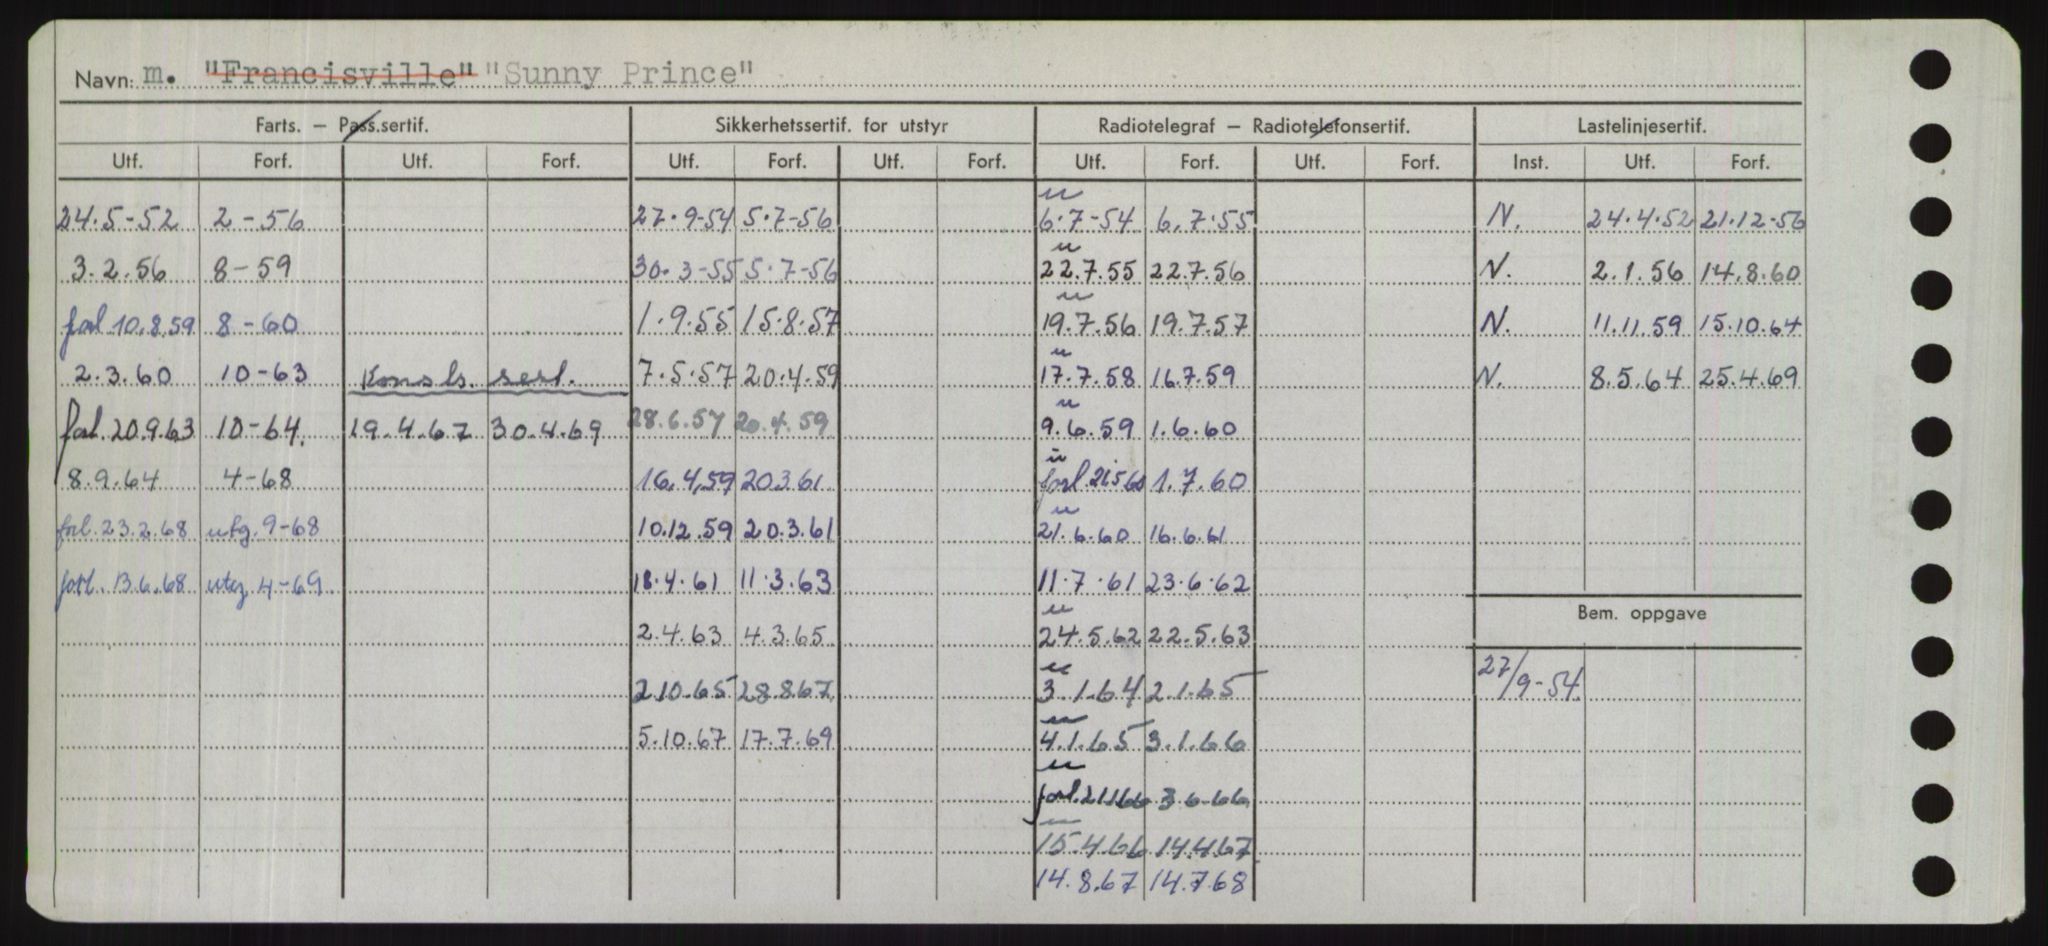 Navn: m. "Francisville" "Sunny Prince"
Farts. — Pass.sertif. Sikkerhetssertif. for utstyr Radiotelegraf — Radiotelefonsertif. Lastelinjesertif.
Utf. Forf. Utf. Forf. Utf. Forf. Utf. Forf. Utf. Forf. Utf. Forf. Inst. Utf. Forf.
u
24.5-52 2-56 27.9-54 5.7-56 6.7-54 6.7.55 N. 24.4.52 21.12-56
u
3.2.56 8-59 30.3-55 5.7-56 22.7.55 22.7.56 N. 2.1.56 14.8.60
u
forl 10.8.59 8-60 1.9.55 15.8.57 19.7.56 19.7.57 N. 11.11.59 15.10.64
u
2.3.60 10-63 Konstr. sert. 7.5.57 20.4.59 17.7.58 16.7.59 N. 8.5.64 25.4.69
u
forl. 20.9.63 10-64. 19.4.67 30.4.69 28.6.57 20.4.59 9.6.59 1.6.60
u
8.9.64 4-68 16.4.59 20.3.61 forl. 21.5.60 1.7.60
u
forl. 23.2.68 utg. 9-68 10.12.59 20.3.61 21.6.60 16.6.61
forl. 13.6.68 utg 4-69 18.4.61 11.3.63 11.7.61 23.6.62
Bem. oppgave
u
2.4.63 4.3.65 24.5.62 22.5.63
u
2.10.65 28.8.67 3.1.64 2.1.65 27/9-54
u
5.10.67 17.7.69 4.1.65 3.1.66
u
forl. 21.1.66 3.6.66
15.4.66 14.4.67
14.8.67 14.7.68